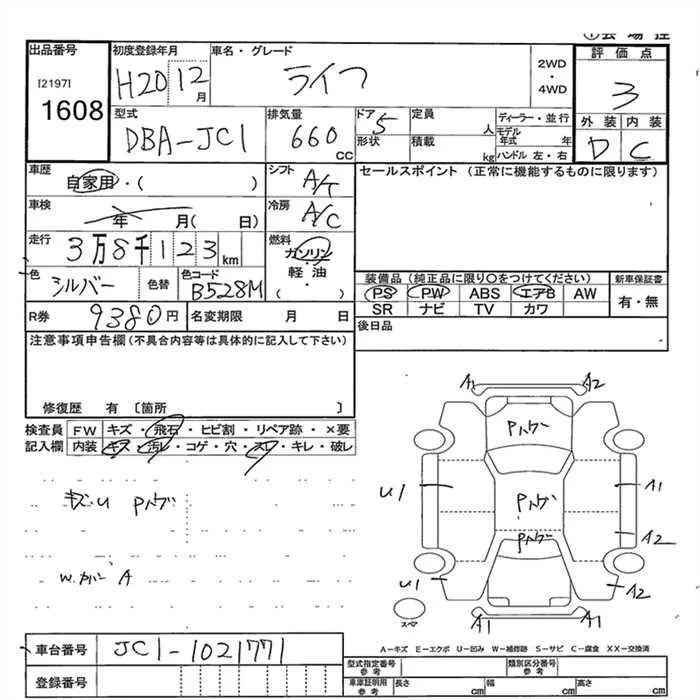 出品番号 初度登録年月 車名・グレード 2WD・4WD 評価点
[2197]
1608
H20 12月 ライフ 3
型式 排気量 ドア 定員 ディーラー・並行 外装 内装
DBA-JC1 660 CC 5 人 モデル年式 年 D C
形状 積載 kg ハンドル 左・右
車歴 自家用・( ) シフト A/T セールスポイント (正常に機能するものに限ります)
車検 年 月( 日) 冷房 A/C
走行 3万8千123km 燃料 ガソリン 軽油 ・( )
色 シルバー 色替 色コード B528M
装備品(純正品に限り○をつけてください) 新車保証書
PS PW ABS エアB AW 有・無
SR ナビ TV カワ
R券 9380円 名変期限 月 日 後日品
注意事項申告欄(不具合内容等は具体的に記入して下さい)
修復歴 有 〔箇所 〕
検査員 FW キズ・飛石・ヒビ割・リペア跡・×要
記入欄 内装 キズ・汚レ・コゲ・穴・スレ・キレ・破レ
A1 A2
Pハゲ
キズ・U Pハゲ
U1 Pハゲ A1
Pハゲ A2
W.カバー A
U1 A2
スペア
A1 A1
A-キズ E-エクボ U-凹み W-補修跡 S-サビ C-腐食 XX-交換済
車台番号 JC1-1021771
登録番号
型式指定番号 参考 類別区分番号 参考
車庫証明用 参考 長さ cm 幅 cm 高さ cm